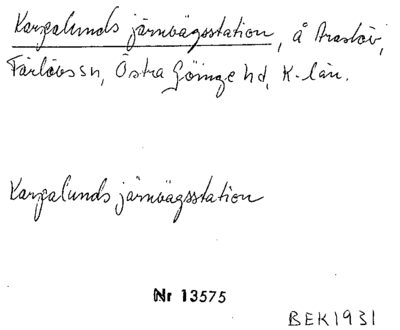 Karpalunds järnvägsstation, å Araslöv,
Färlövs sn, Östra Göinge hd, K-län.
Karpalunds järnvägsstation
Nr 13575
BEK1931